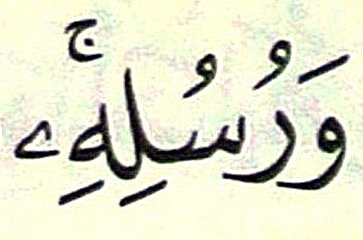 وَرُسُلِهِۦۚ